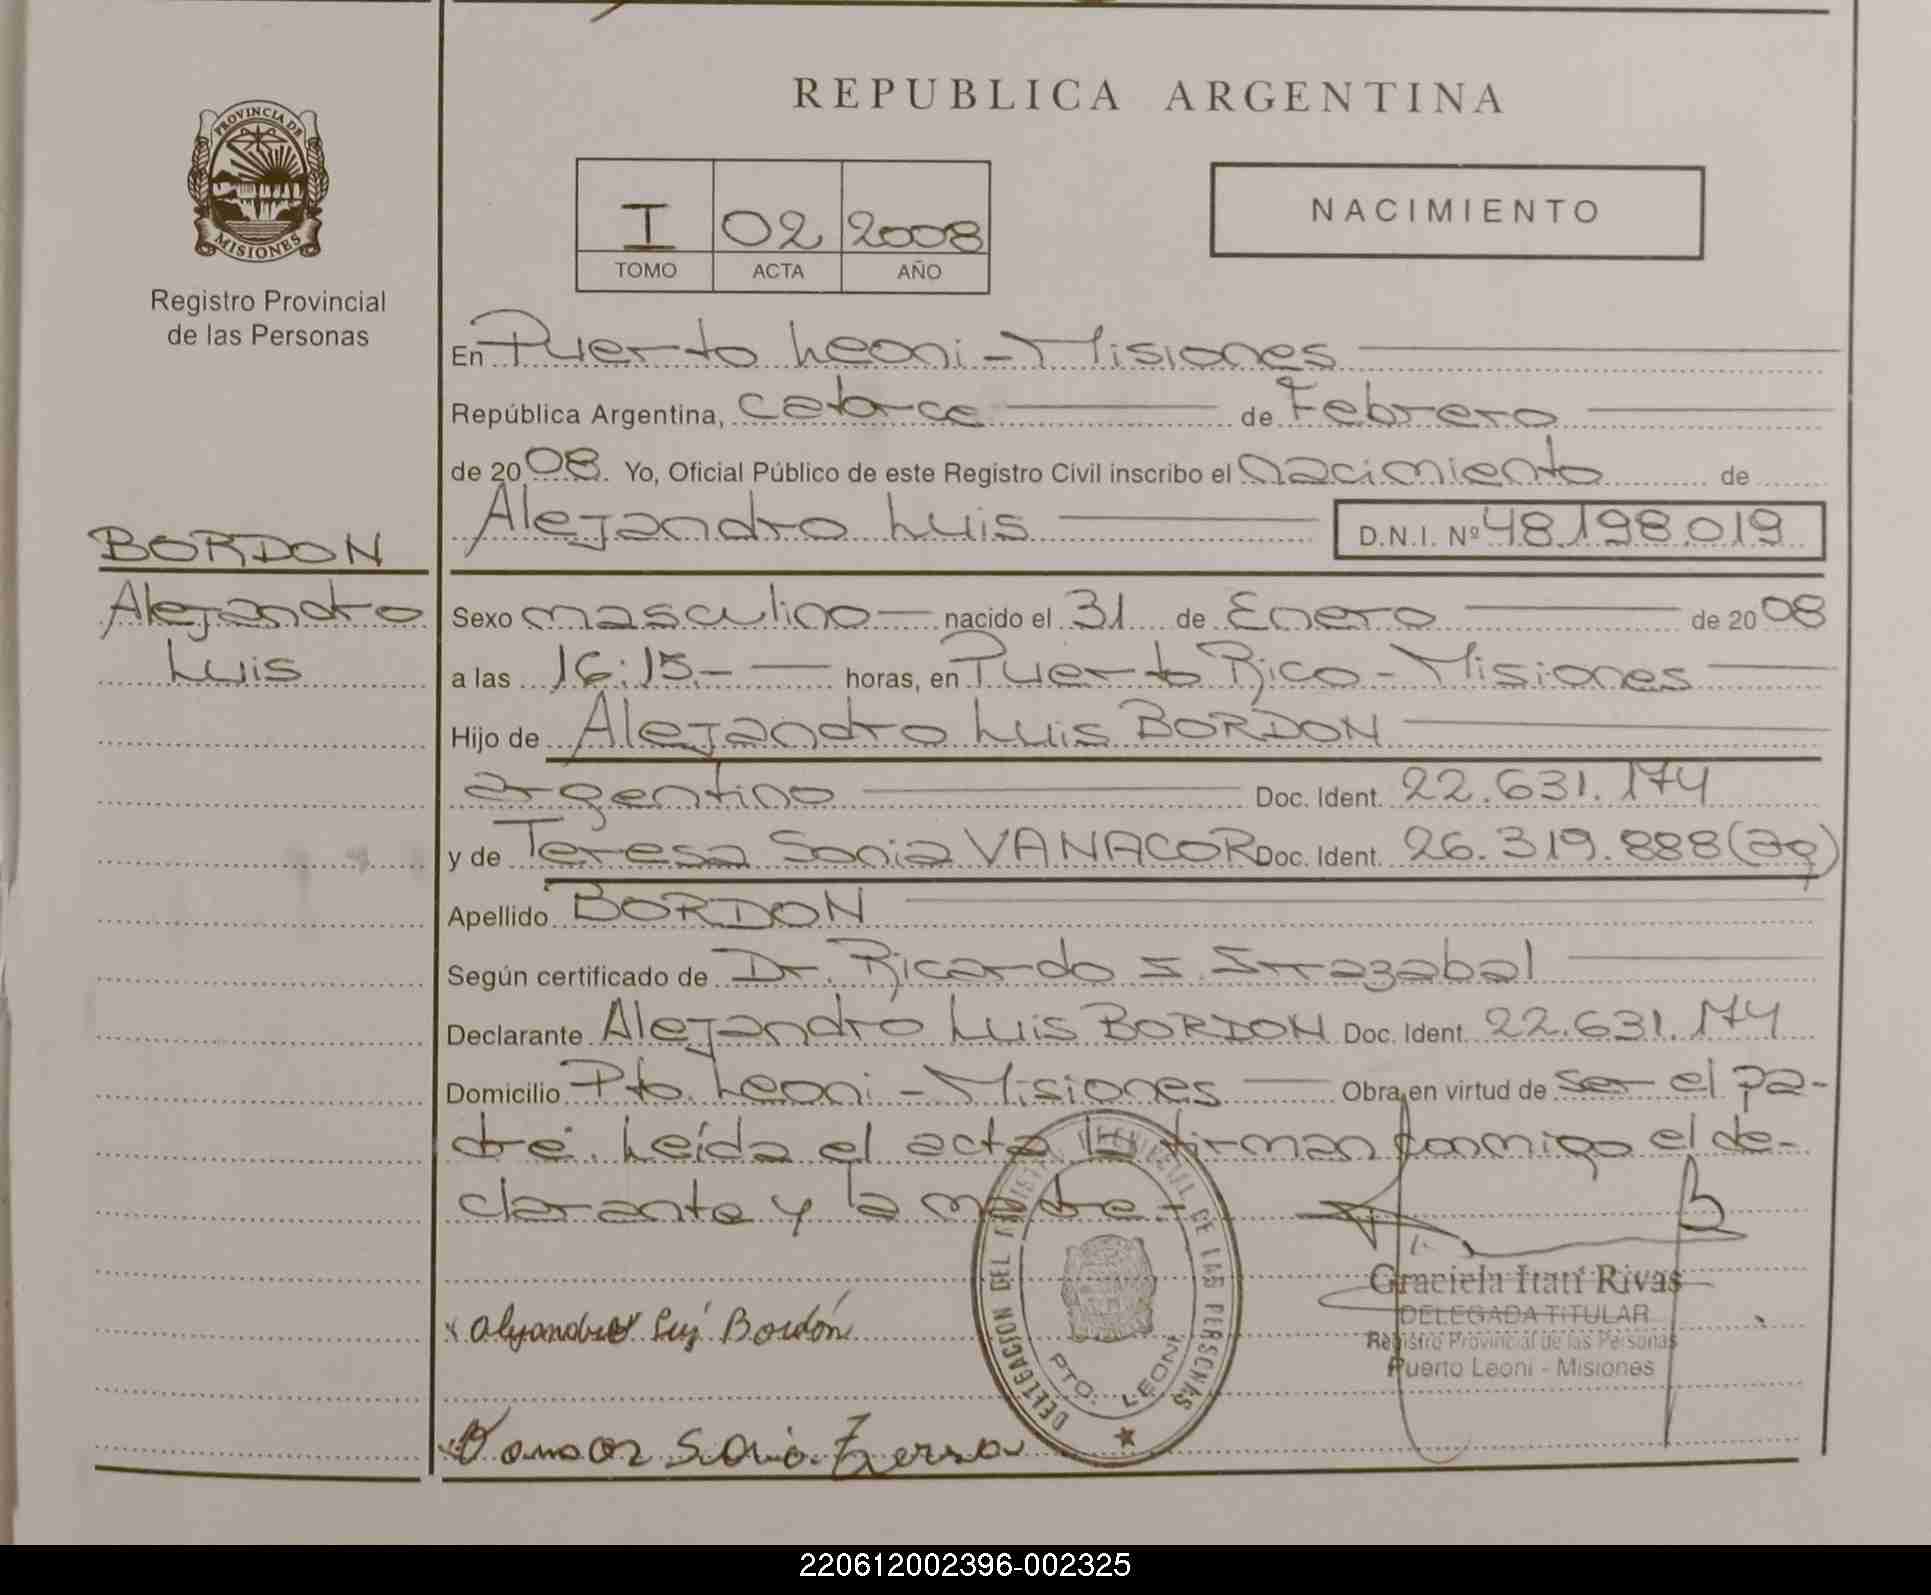 REPUBLICA ARGENTINA
PROVINCIA DE
MISIONES
Registro Provincial
de las Personas
I 02 2008
TOMO ACTA AÑO
NACIMIENTO
En Puerto Leoni - Misiones
República Argentina, catorce de Febrero
de 2008. Yo, Oficial Público de este Registro Civil inscribo el nacimiento de
Alejandro Luis D.N.I. Nº 48.198.019
BORDON
Alejandro
Luis
Sexo masculino nacido el 31 de Enero de 2008
a las 16:15.- horas, en Puerto Rico - Misiones
Hijo de Alejandro Luis BORDON
argentino Doc. Ident. 22.631.174
y de Teresa Sonia VANACOR Doc. Ident. 26.319.888 (ag)
Apellido BORDON
Según certificado de Dr. Ricardo
Declarante Alejandro Luis BORDON Doc. Ident. 22.631.174
Domicilio Pto. Leoni - Misiones Obra en virtud de ser el pa-
dre. Leída el acta la firman conmigo el de-
clarante y la madre.-
DELEGACION DEL REGISTRO PROVINCIAL DE LAS PERSONAS
PTO. LEONI
Graciela Itatí Rivas
DELEGADA TITULAR
Registro Provincial de las Personas
Puerto Leoni - Misiones
x Alejandro Luis Bordón
220612002396-002325